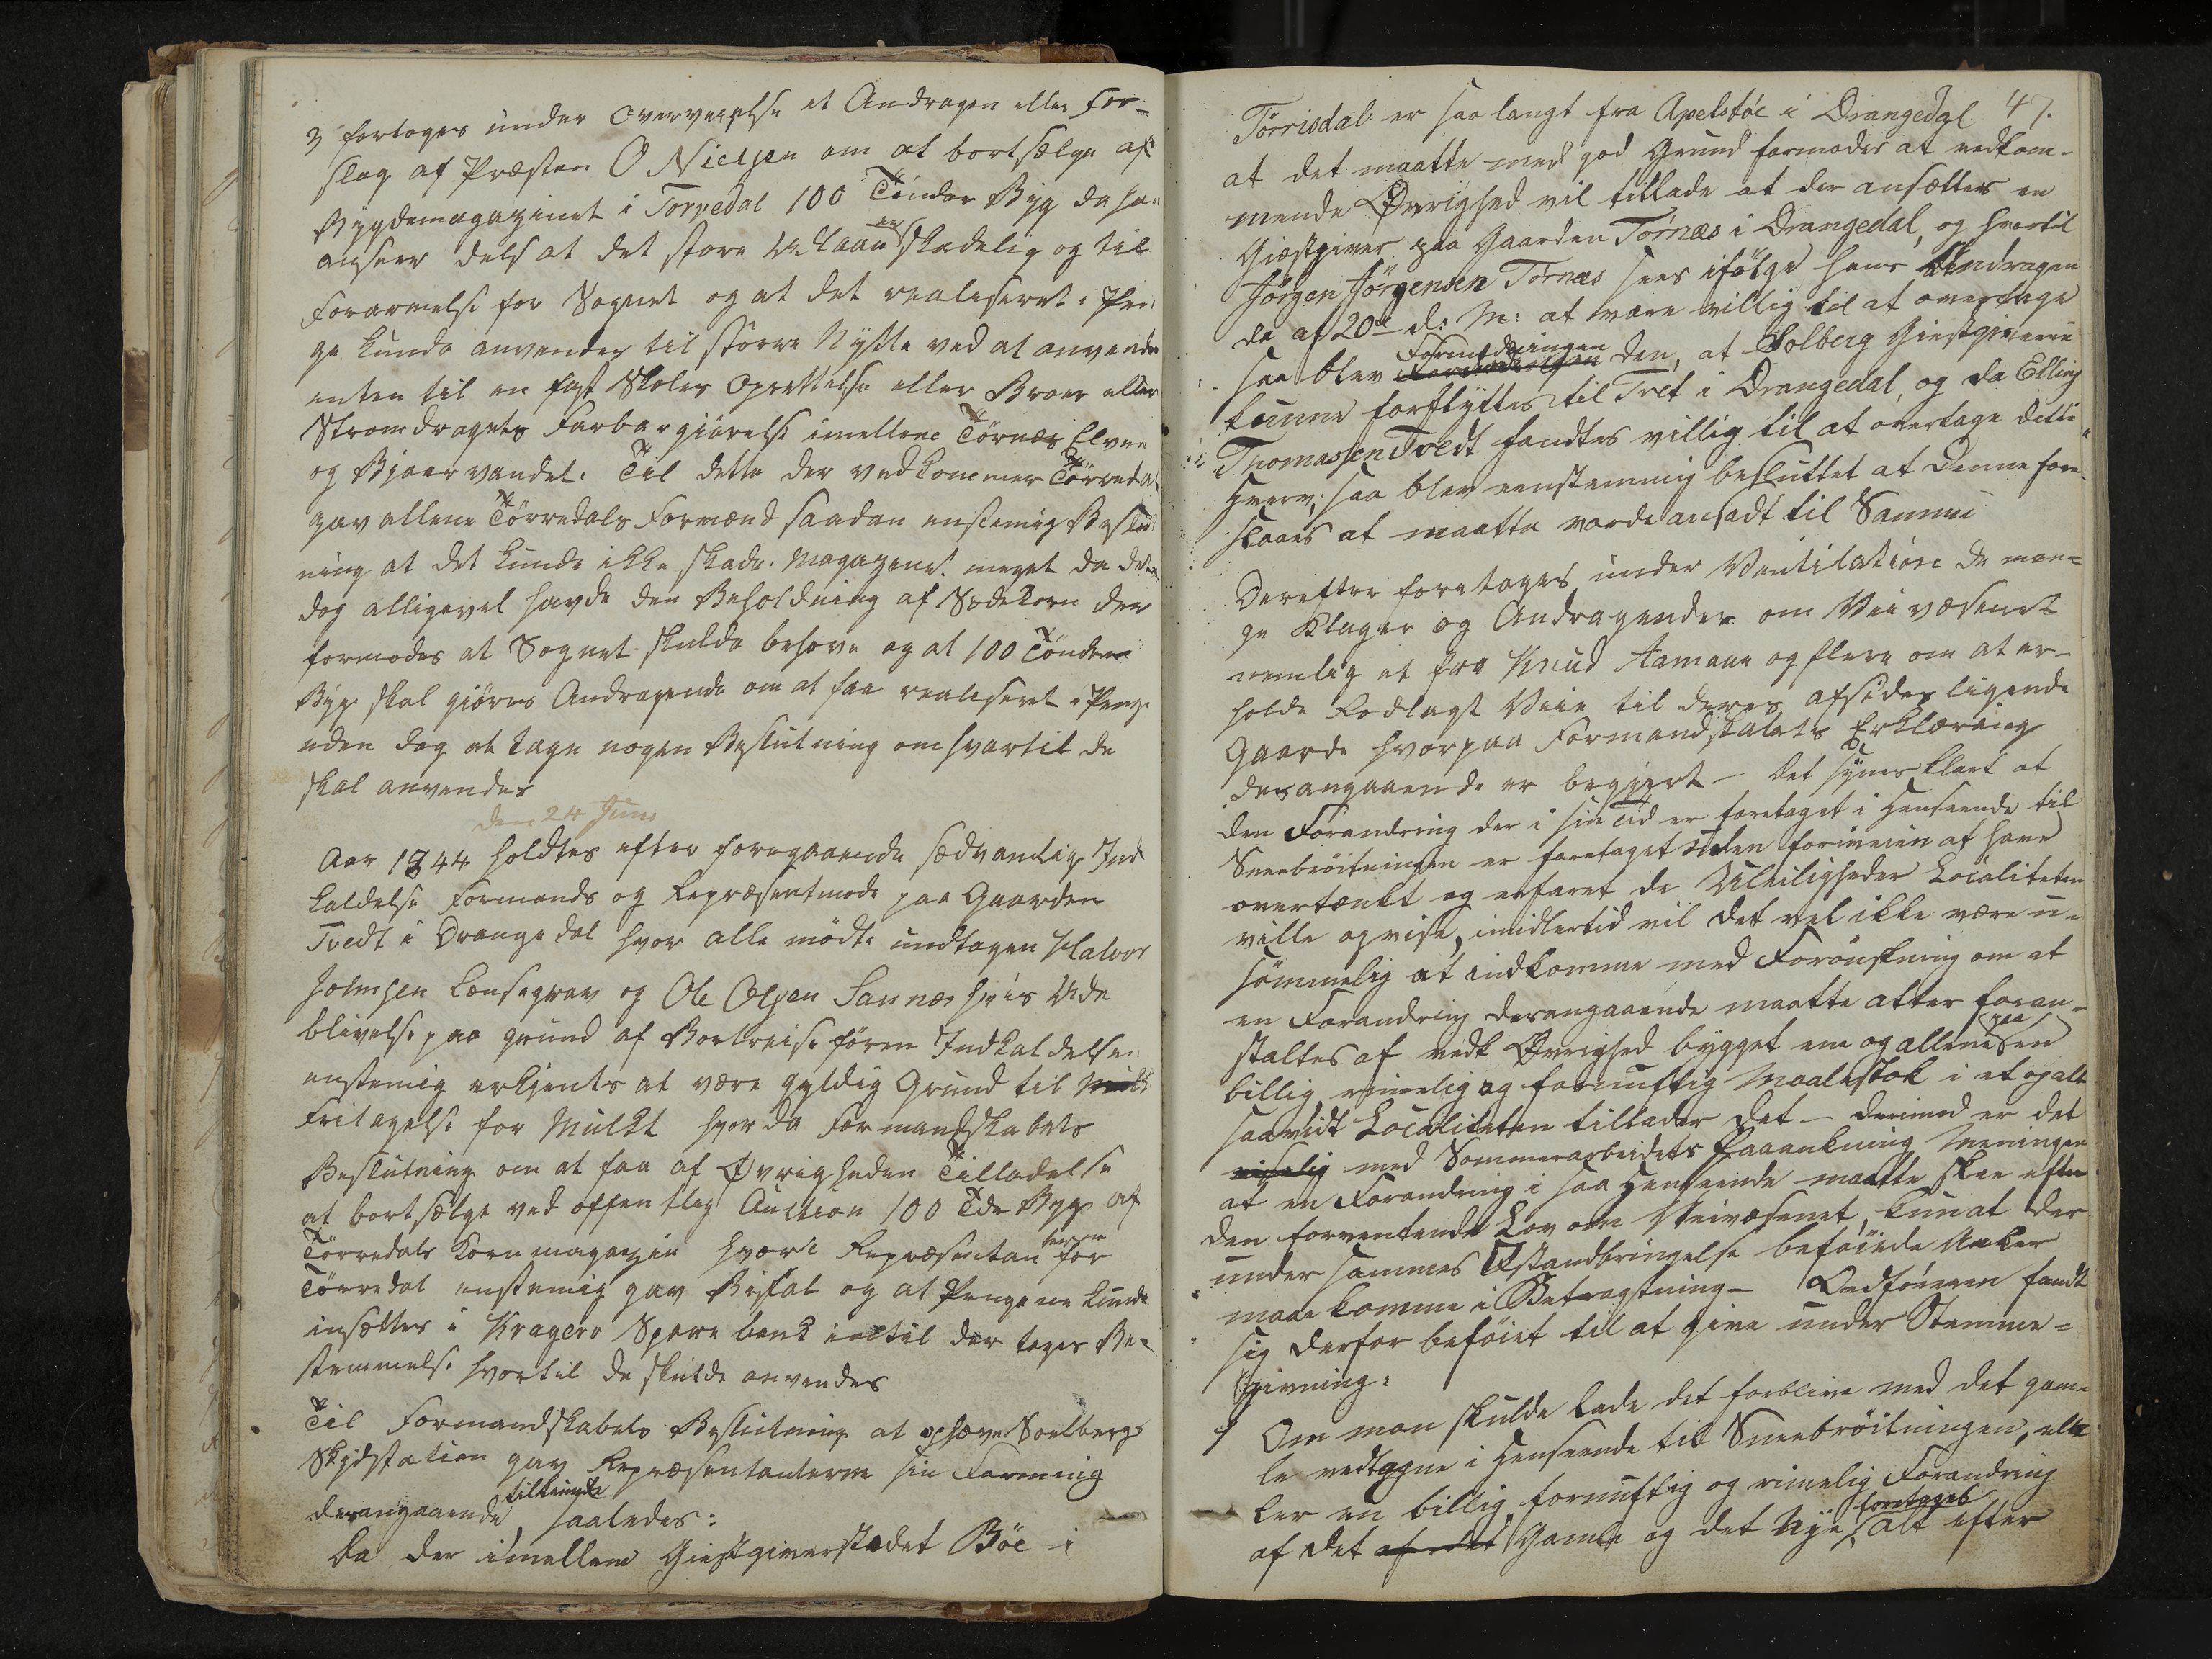 3 fortoges under Overveielse et Andragen eller For-
slag af Præsten O Nielsen om at bortsælge af
Bygdemagazinet i Torredal 100 Tønder Byg da han
anseer dels at det store Udlaan er skadelig og til
Forarmelse for Sognet og at det realiseret i Pen-
ge kunde anvendes til større Nytte ved at anvende
enten til en fast Skoles Oprettelse eller Broer eller
Strømdragets Farbargiørelse imellem Tørnæs Elven
og Bjaarvandet. Til dette der vedkommer Tørredal
gav allene Tørredals Formænd saadan enstemig Beslut
ning at det kunde ikke skade Magazenet meget da det
dog alligevel havde den Beholdning af Sædekorn der
formodes at Sognet skulde behøve og at 100 Tønder
Byg skal giøres Andragende om at faa realiseret i Penge
uden dog at tage nogen Beslutning om hvortil de
skal anvendes
den 24 Juni
Aar 1844 holdtes efter foregaaende sædvanlig Ind
kaldelse Formands og Repræsentmøde paa Gaarden
Tvedt i Drangedal hvor alle mødte undtagen Halvor
Johnsen Lonsegrav og Ole Olsen Sannæs hvis Ude
blivelse paa grund af Bortreise føren Indkaldelsen
enstemig erkjentes at være gyldig Grund til
Fritagelse for Mulkt hvor da Formandskabets
Beslutning om at faa af Øvrigheden Tilladelse
at bortsælge ved offentlig Auction 100 Tde Byg af
Tørredals Kornmagazin hvori Repræsentanterne for
Tørredal enstemig gav Bifal og at Pengene kunde
insættes i Kragerø Sparebank indtil der tages Be-
stemmelse hvortil de skulde anvendes
Til Formandskabets Beslutning at ophæve Soelbergs
Skydstation gav Repræsentanterne sin Formening
derangaaende tilkiende saaledes:
Da der imellem Giestgiverstædet Bøe i
47.
Tørrisdal er saa langt fra Apelstøl i Drangedal
at det maatte med god Grund formodes at vedkom-
mende Øvrighed vil tillade at der ansættes en
Giæstgiver paa Gaarden Tørnæs i Drangedal, og hvortil
Jørgen Jørgensen Tørnæs sees ifølge hans Andragen
de af 20de d: M: at være villig til at overtage
saa blev Formodningen den, at Solberg Giestgiverie
kunne forflyttes til Tvet i Drangedal, og da Elling
Thomassen Tvedt fandtes villig til at overtage dette
Hverv; saa blev eenstemmig besluttet at denne fore
slaaes at maatte vorde ansadt til Samme
Derefter foretoges under Ventilation de man-
ge Klager og Andragender om Veivæsenet
nemlig et fra Knud Aamaan og flere om at er-
holde Rodlagt Veie til deres afsides ligende
Gaarde hvorpaa Formandskabets Erklæring
desangaaende er begjert – det synes klart at
den Forandring der i sin Tid er foretaget i Henseende til
Sneebrøitningen er foretaget uden forinden at have
overtænkt og erfaret de Uleiligheder Localiteten
ville opvise, imidlertid vil det vel ikke være u-
sømmelig at indkomme med Forønskning om at
en Forandring derangaaende maatte atter foran-
staltes af vedk Øvrighed bygget ene og allene paa en
billig rimelig og fornuftig Maalestok i et og alt
saavidt Localiteten tillader det – derimod er det
med Sommerarbeidets Paaankning Meningen
at en Forandring i saa Henseende maatte skee efter
den forventende Lov om Veivæsenet, kun at der
under sammes Istandbringelse beføiede Anker
maae komme i Betragtning – Ordføreren fandt
sig derfor beføiet til at give under Stemme-
givning:
1 Om man skulde lade det forblive med det gam-
le vedtagne i Henseende til Sneebrøitningen, el-
ler en billig, fornuftig og rimelig Forandring
af det Gamle og det Nye foretages alt efter